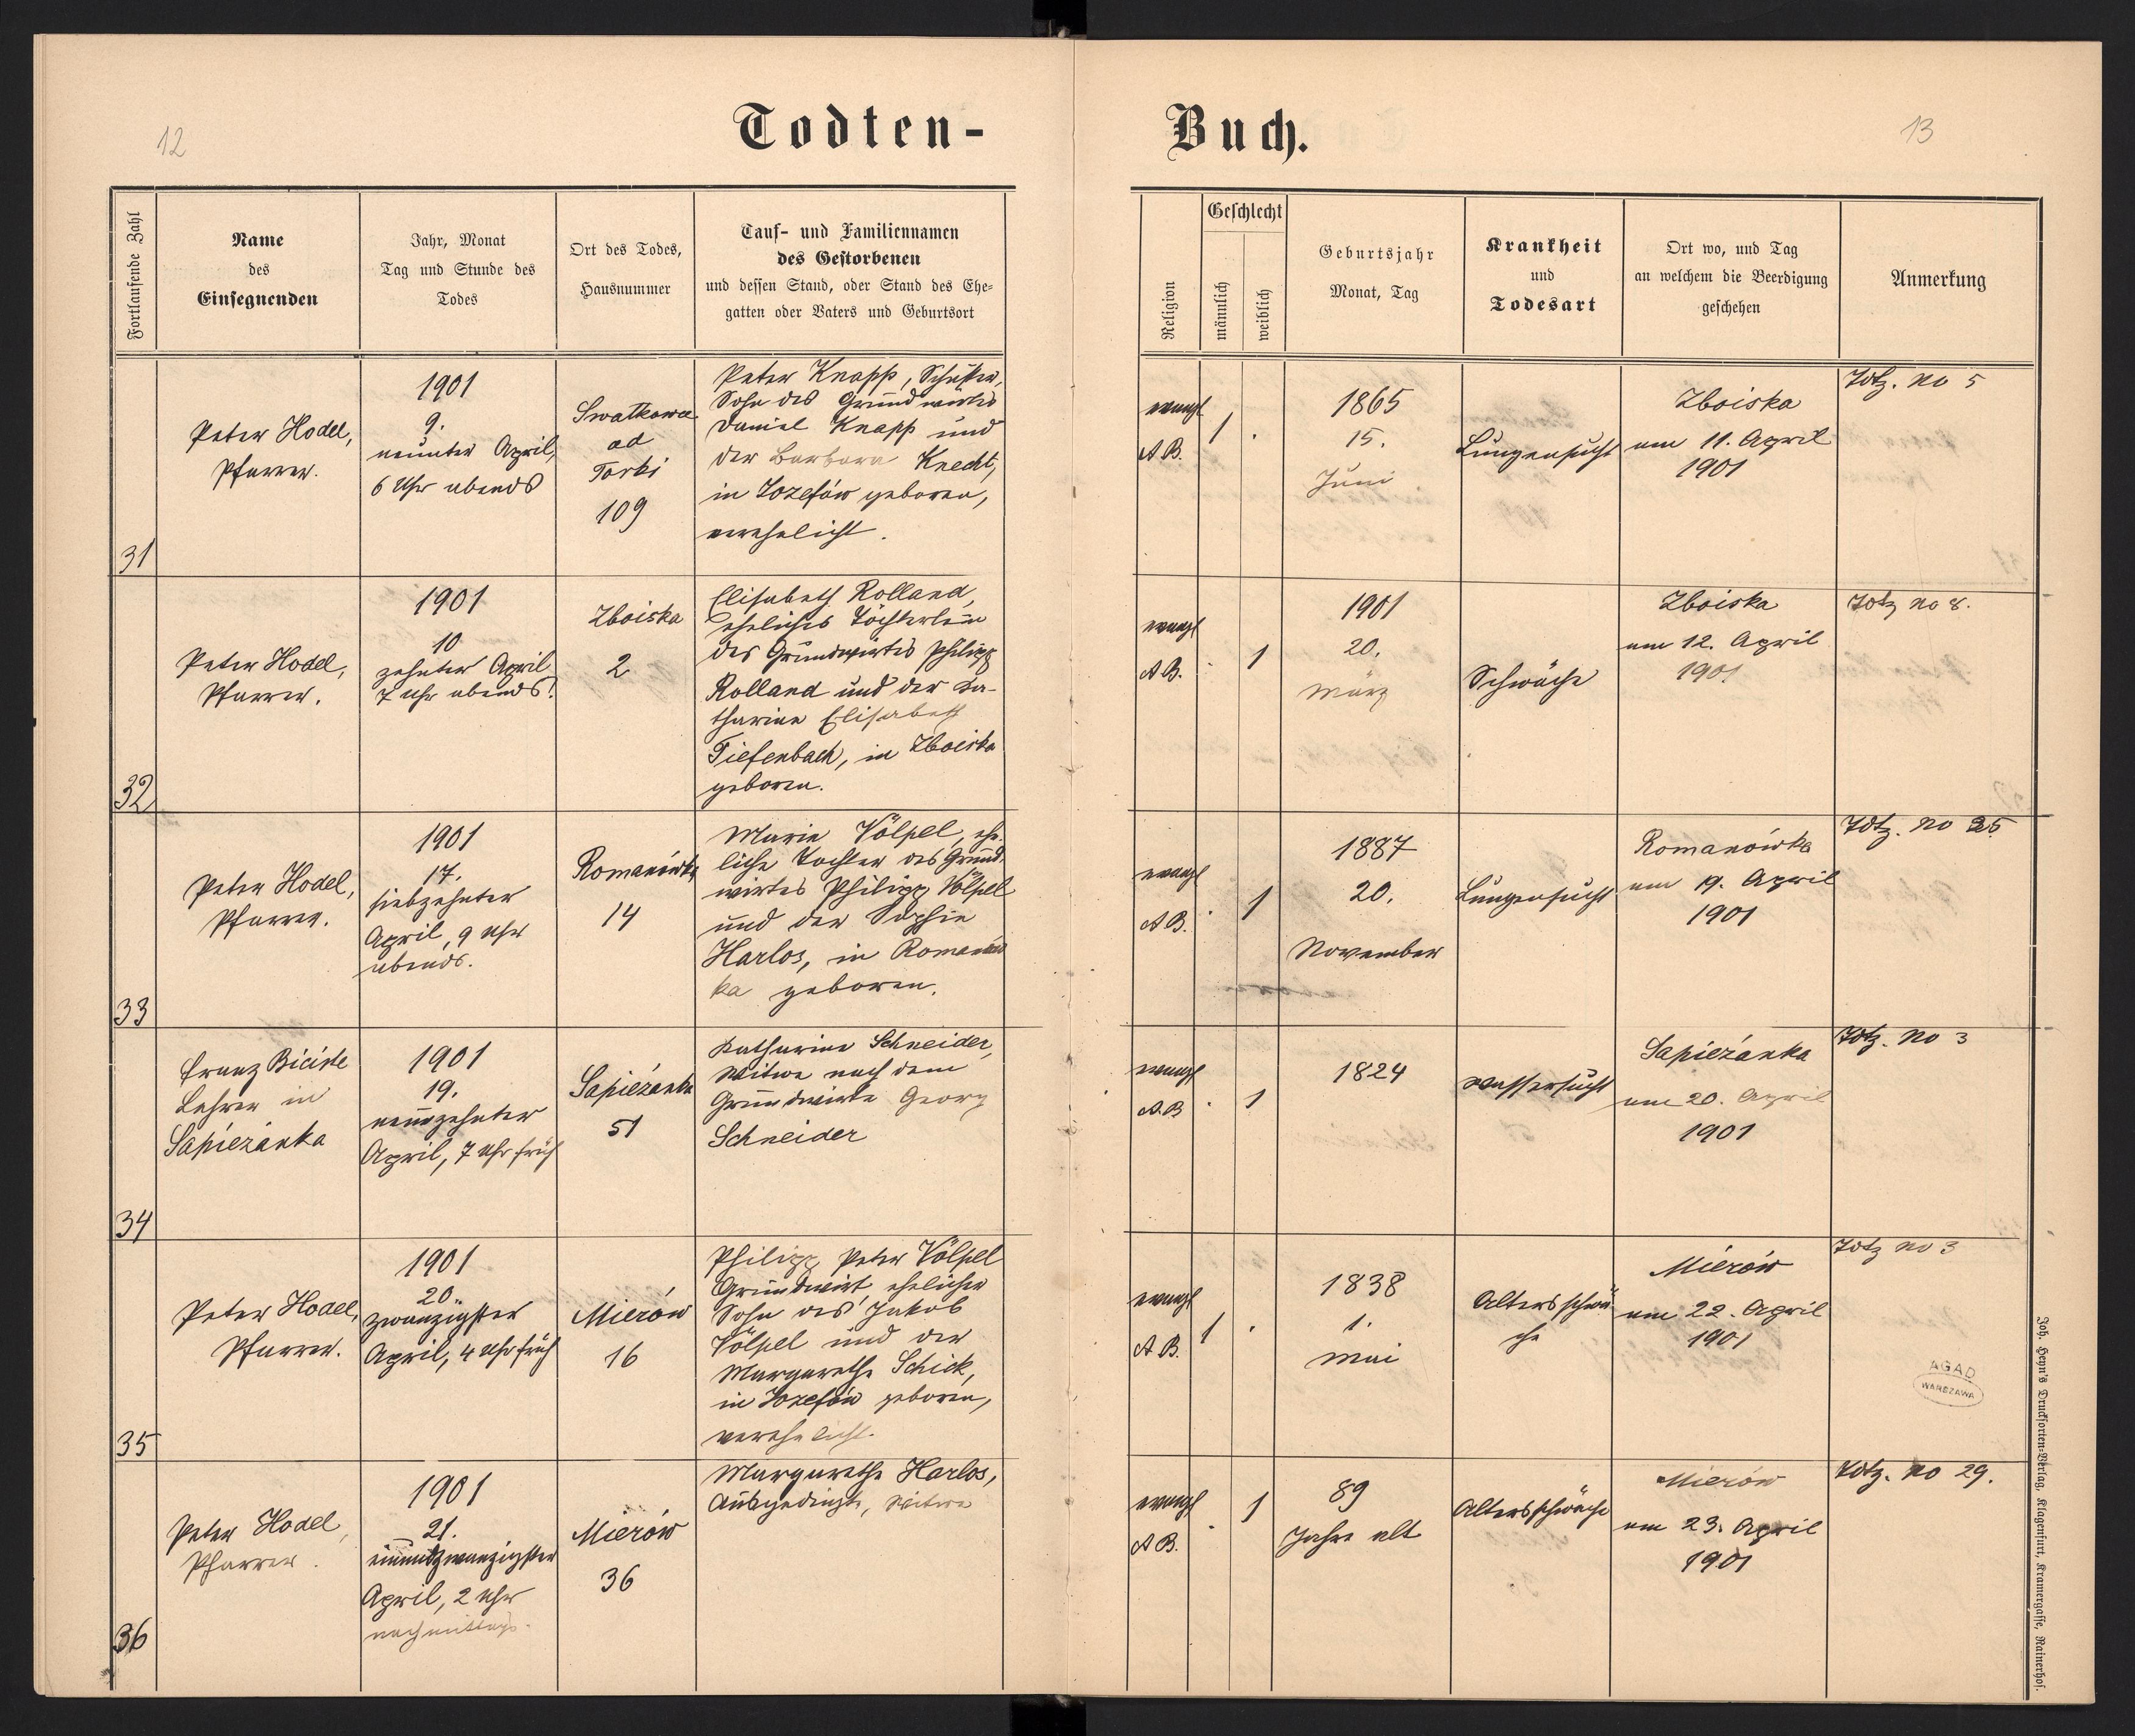 12
Todten-
Buch.
13
Fortlaufende Zahl
Name
des
Einsegnenden
Jahr, Monat
Tag und Stunde des
Todes
Ort des Todes,
Hausnummer
Tauf- und Familiennamen
des Gestorbenen
und dessen Stand, oder Stand des Ehe-
gatten oder Vaters und Geburtsort
Religion
Geschlecht
männlich
weiblich
Geburtsjahr
Monat, Tag
Krankheit
und
Todesart
Ort wo, und Tag
an welchem die Beerdigung
geschehen
Anmerkung
31
Peter Hodel,
Pfarrer.
1901
9.
neunter April,
6 Uhr abends
Swatkowa
ad
Torki
109
Peter Knapp, Schuster,
Sohn des Grundwirtes
Daniel Knapp und
der Barbara Knecht,
in Jozefów geboren,
verehelicht.
evangl
A.B.
1
.
1865
15.
Juni
Lungensucht
Zboiska
am 11. April
1901
Totz. no 5
32
Peter Hodel,
Pfarrer.
1901
10
zehnter April
7 Uhr abends.
Zboiska
2
Elisabeth Rolland,
eheliches Töchterlein
des Grundwirtes Philipp
Rolland und der Ka-
tharina Elisabeth
Tiefenbach, in Zboiska
geboren.
evangl
A.B.
.
1
1901
20.
März
Schwäche
Zboiska
am 12. April
1901
Totz no 8.
33
Peter Hodel,
Pfarrer.
1901
17.
siebzehnter
April, 9 Uhr
abends.
Romanówka
14
Marie Völpel, ehe-
liche Tochter des Grund-
wirtes Philipp Völpel
und der Sophie
Harlos, in Romanów
ka geboren.
evangl
A.B.
.
1
1887
20.
November
Lungensucht
Romanówka
am 19. April
1901
Totz. no 25
34
Franz Biciste
Lehrer in
Sapieżanka
1901
19.
neunzehnter
April, 7 Uhr früh
Sapieżanka
51
Katharina Schneider,
Witwe nach dem
Grundwirte Georg
Schneider
evangl
A.B
.
1
1824
Wassersucht
Sapieżanka
am 20. April
1901
Totz. no 3
35
Peter Hodel,
Pfarrer.
1901
20.
zwanzigster
April, 4 Uhr früh
Mierów
16
Philipp Peter Völpel
Grundwirt, ehelicher
Sohn des Jakob
Völpel und der
Margarethe Schick,
in Jozefów geboren,
verehelicht.
evangl
A.B.
1
.
1838
1.
Mai
Altersschwä-
che
Mierów
am 22. April
1901
Totz no 3
AGAD
WARSZAWA
36
Peter Hodel,
Pfarrer.
1901
21.
einundzwanzigster
April, 2 Uhr
nachmittags.
Mierów
36
Margarethe Harlos,
Ausgedingte, Witwe
evangl
A.B.
.
1
89
Jahre alt
Altersschwäche
Mierów
am 23. April
1901
Totz. no 29.
Joh. Heyn's Drucksorten-Verlag, Klagenfurt, Kramergasse, Rainerhof.